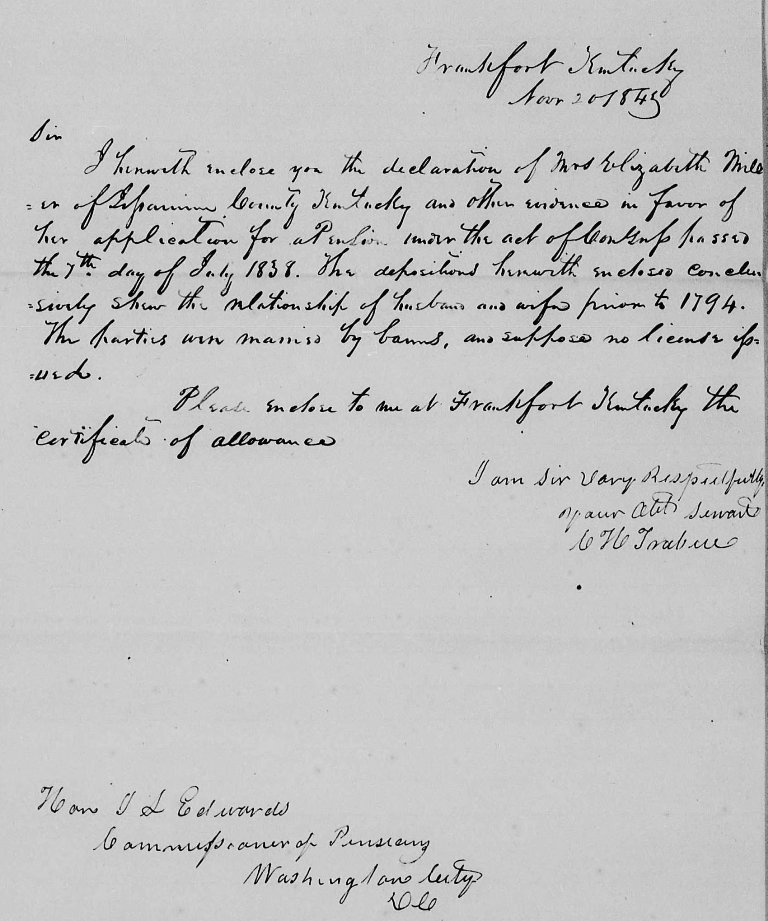 Frankfort Kentucky
Novr 20 1845
Sir
I herewith enclose you the declaration of Mrs Elizabeth Mill
=er of County Kentucky and other evidence in favor of
her application for a Pension under the act of Congress passed
the 7th day of July 1838. The depositions herewith enclosed conclu
=sively shew the relationship of husband and wife prior to 1794.
The parties were married by banns, and suppose no license iss=
=ued.
Please enclose to me at Frankfort Kentucky the
certificate of allowance
I am Sir Very Respectfully
your Obt Servant
C H Trabue
Hon J L Edwards
Commissioner of Pensions
Washington City
DC